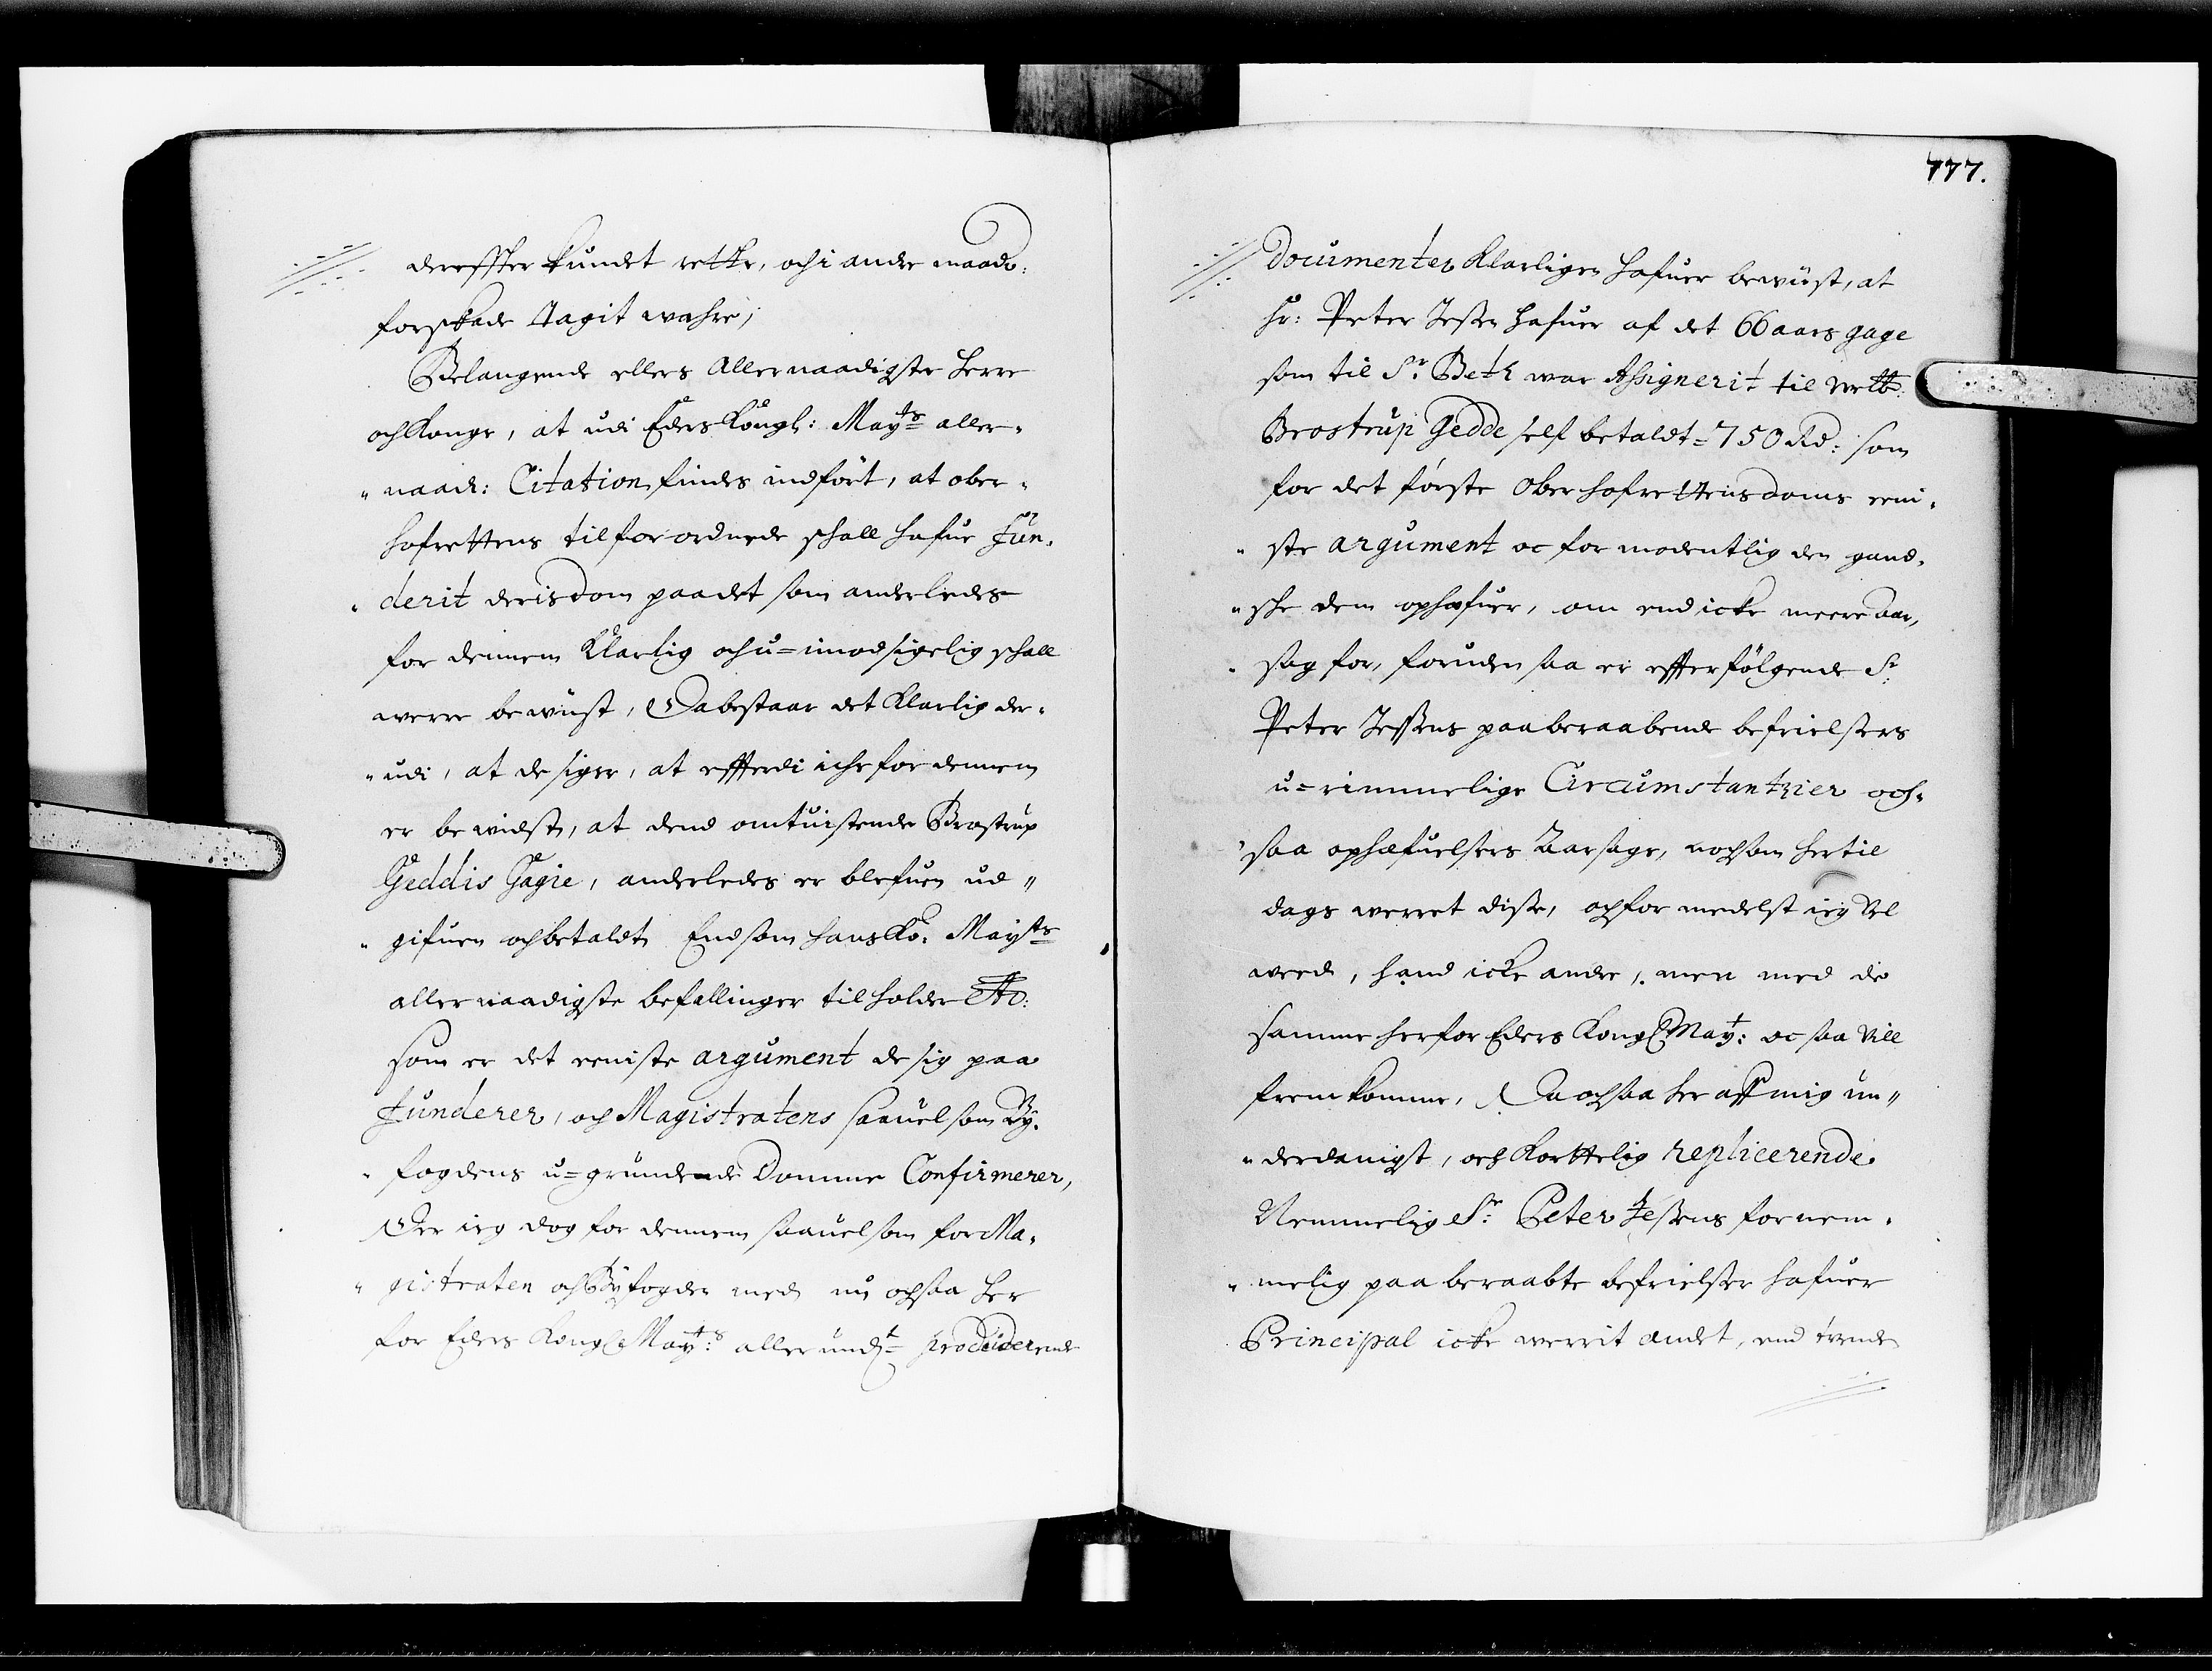 dereffter kundet rette, och i andre maade:
forskade tagit wahre;
Belangende ellers Allernaadigste herre
och Konge, at udi Eders Kongl: Mayts aller-
naadr: Citation findes indfört, at ober-
hofrettens tilforordnede schall hafue Fun-
derit deris dom paa det som anderledes
for dennem Klarlig och u-imodsigelig schall
werre bewüst, Da bestaar det Klarlig der-
udi, at de siger, at effterdi iche for dennem
er bewidst, at dend omtuistende Brostrup
Geddis Gagie, anderledes er blefuen ud-
gifuen och betaldt End som hans Ko: Mayts
allernaadigste befallinger tilholder Etc:
som er det eeniste argument de sig paa
Funderer, och Magistratens saauel som By-
fogdens u-grundende Domme Confirmerer,
Der ieg dog for dennem saauelsom for Ma-
gistraten och Byfogden med nu ochsaa her
for Eders Kongl Mayts: allerundt producerende
777.
Documenter Klarligen hafuer bewüst, at
Hr: Peter Jessen hafuer af det 66 aars gage
som til Sr. Beth war Assignerit til
Brostrup Gedde self betaldt = 750 Rd: som
for det förste Oberhofrettens doms eeni-
ste argument oc formodentlig den gand-
sche dem ophæfuer, om end icke meere aar-
sag for, foruden saa er effterfölgende Sr
Peter Jessens paaberaabende befrielsers
u-rimmelige Circumstantzier och-
saa ophæfuelsers Aarsage, nochsom hertil
dags werret disse, och formedelst ieg Vel
weed, hand icke andre, men med de
samme her for Eders Kongl May: oc saa vill
fremkomme, Da ochsaa her aff mig un-
derdanigst, och Korttelig replicerende
Nemmelig Sr: Peter Jessens fornem-
melig paaberaabte befrielser hafuer
Principal icke werrit andet, end tvende